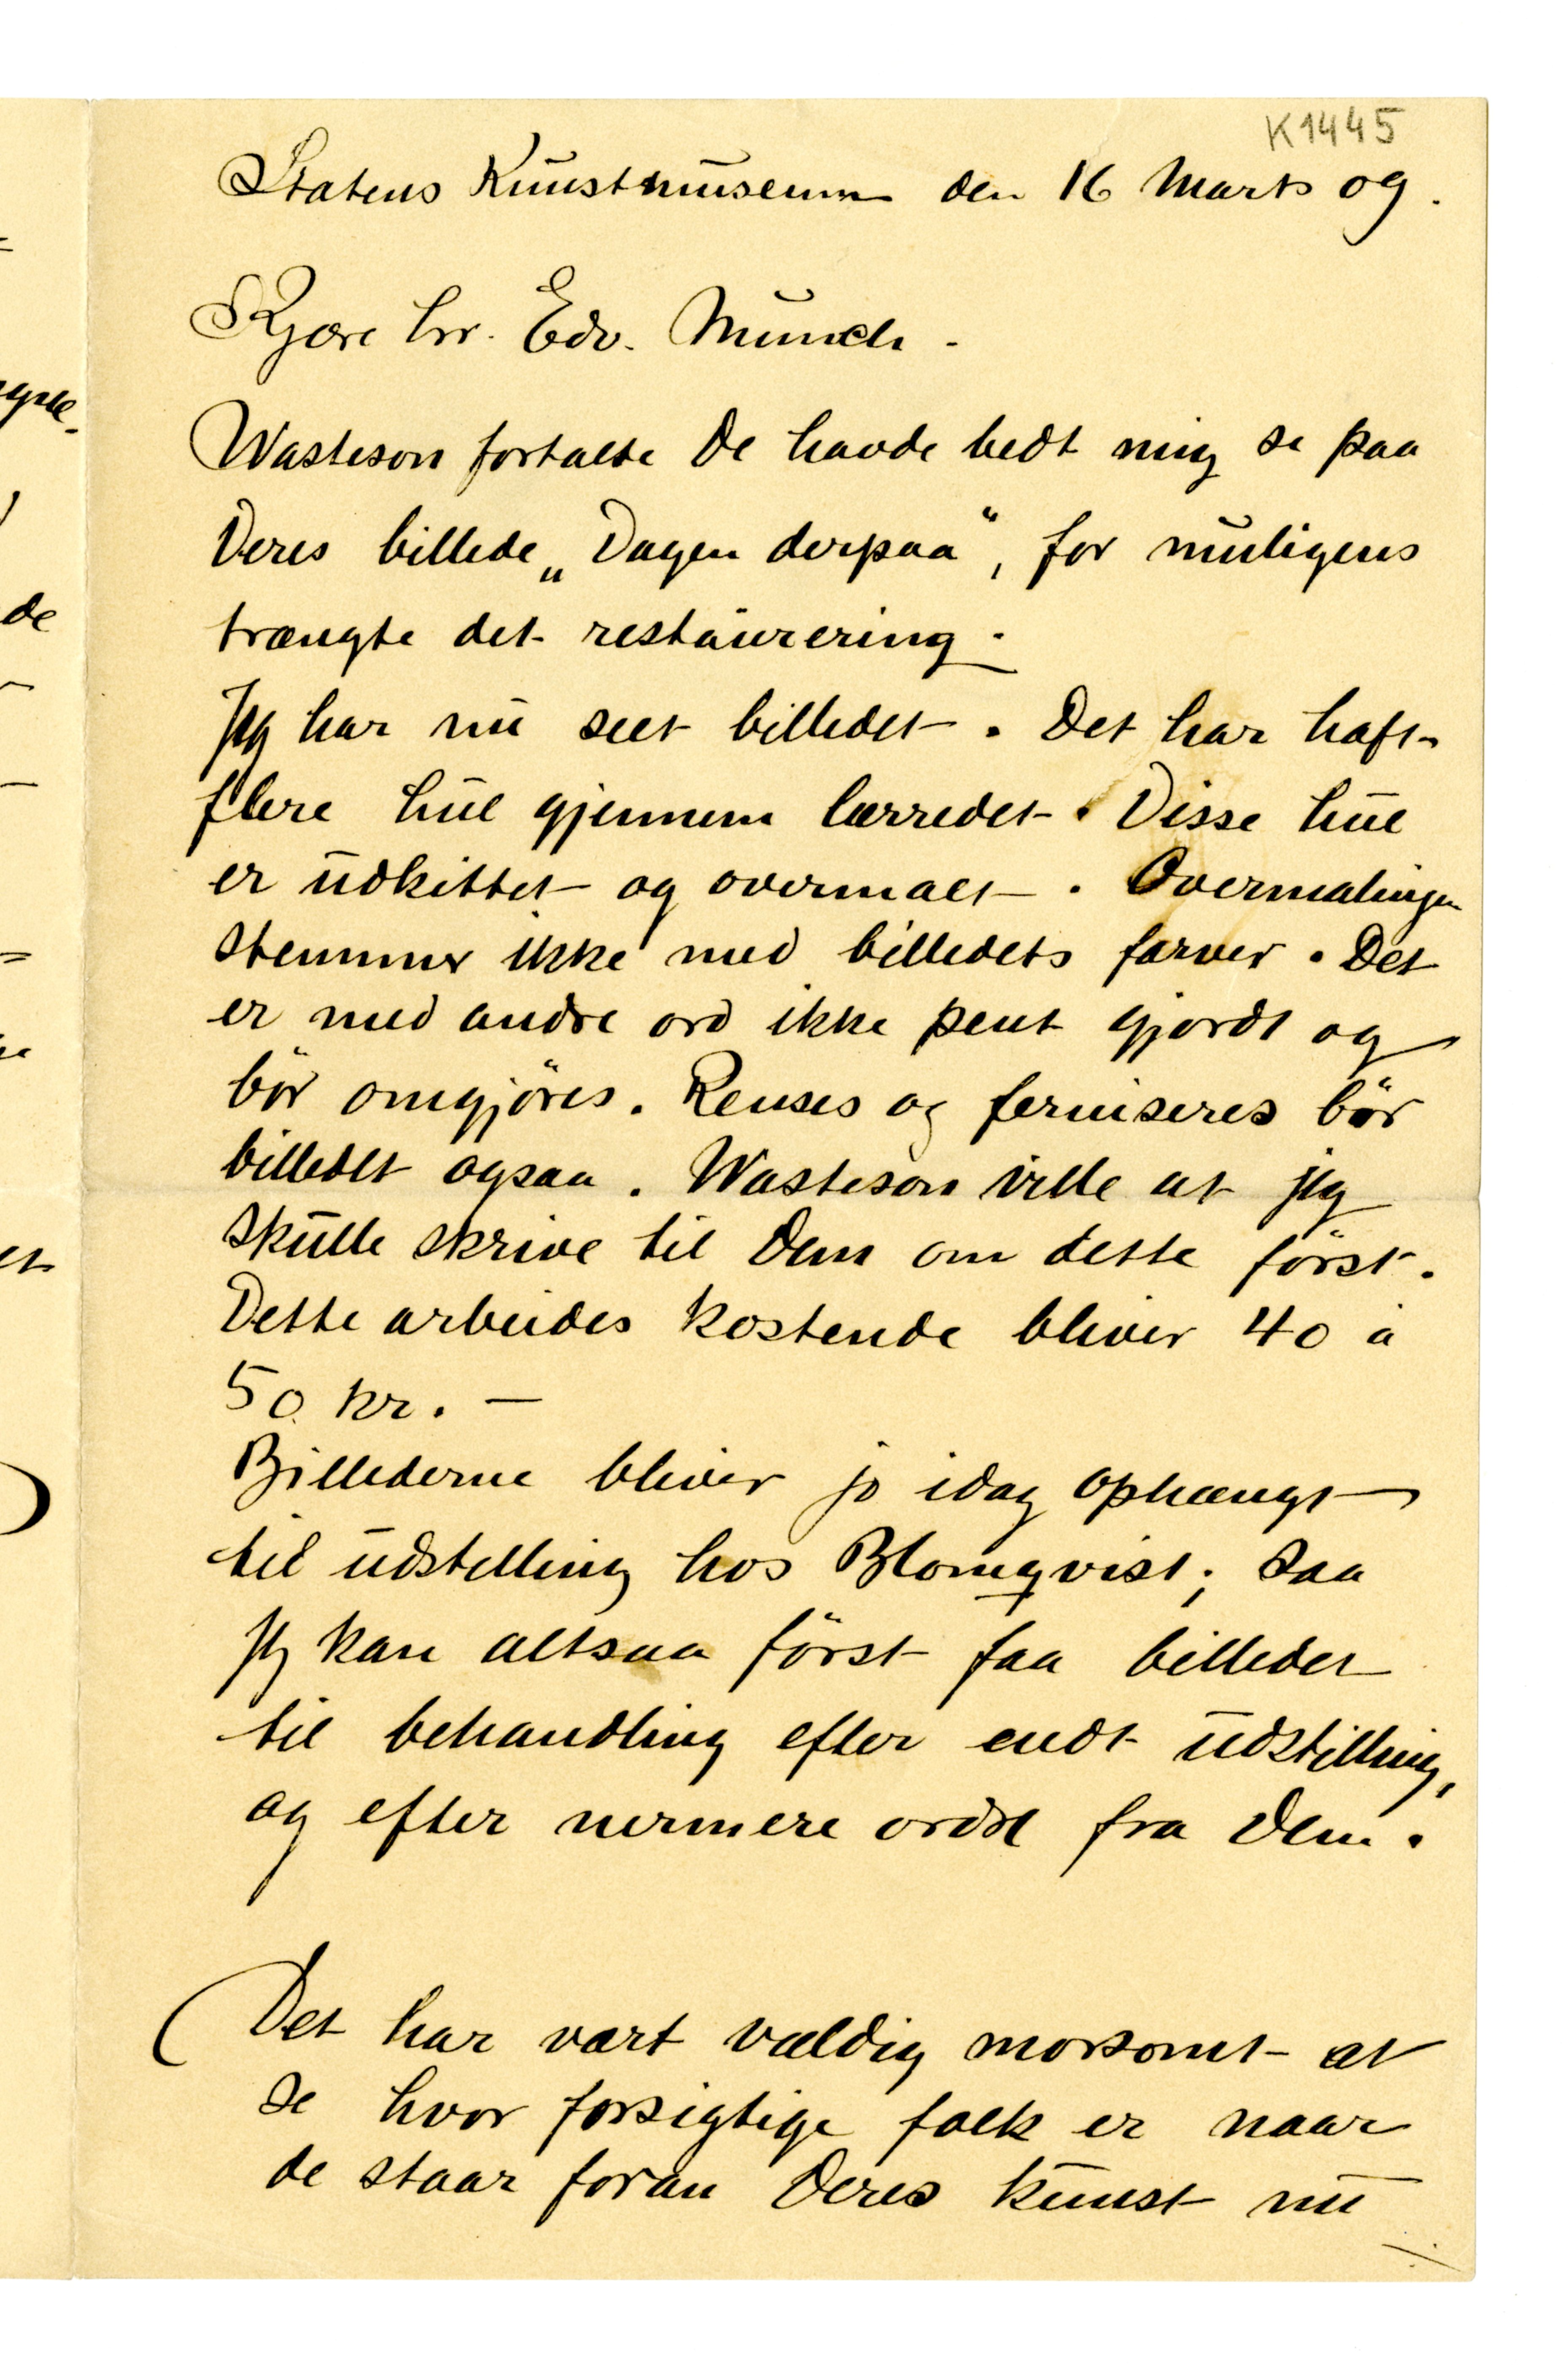 K1445
Statens Kunstmuseum den 16 Marts 09.
Kjære hr. Edv. Munch.
Wasteson fortalte De havde bedt mig se paa
Deres billede „Dagen derpaa“, for muligens
trængte det restaurering.
Jeg har nu seet billedet. Det har haft
flere hul gjennem lærredet. Disse hul
er udkittet og overmalt. Overmalingen
stemmer ikke med billedets farver. Det
er med andre ord ikke pent gjordt og
bör omgjöres. Renses og ferniseres bör
billedet ogsaa. Wasteson vilde at jeg
skulle skrive til Dem om dette först.
Dette arbeides kostende bliver 40 à
50 kr. —
Billederne bliver jo idag ophængt
til udstilling hos Blomqvist; saa
jeg kan altsaa först faa billedet
til behandling efter endt udstilling,
og efter nermere ordre fra Dem.
(Det har vært vældig morsomt at
se hvor forsigtige folk er naar
de staar foran Deres kunst nu
de
et